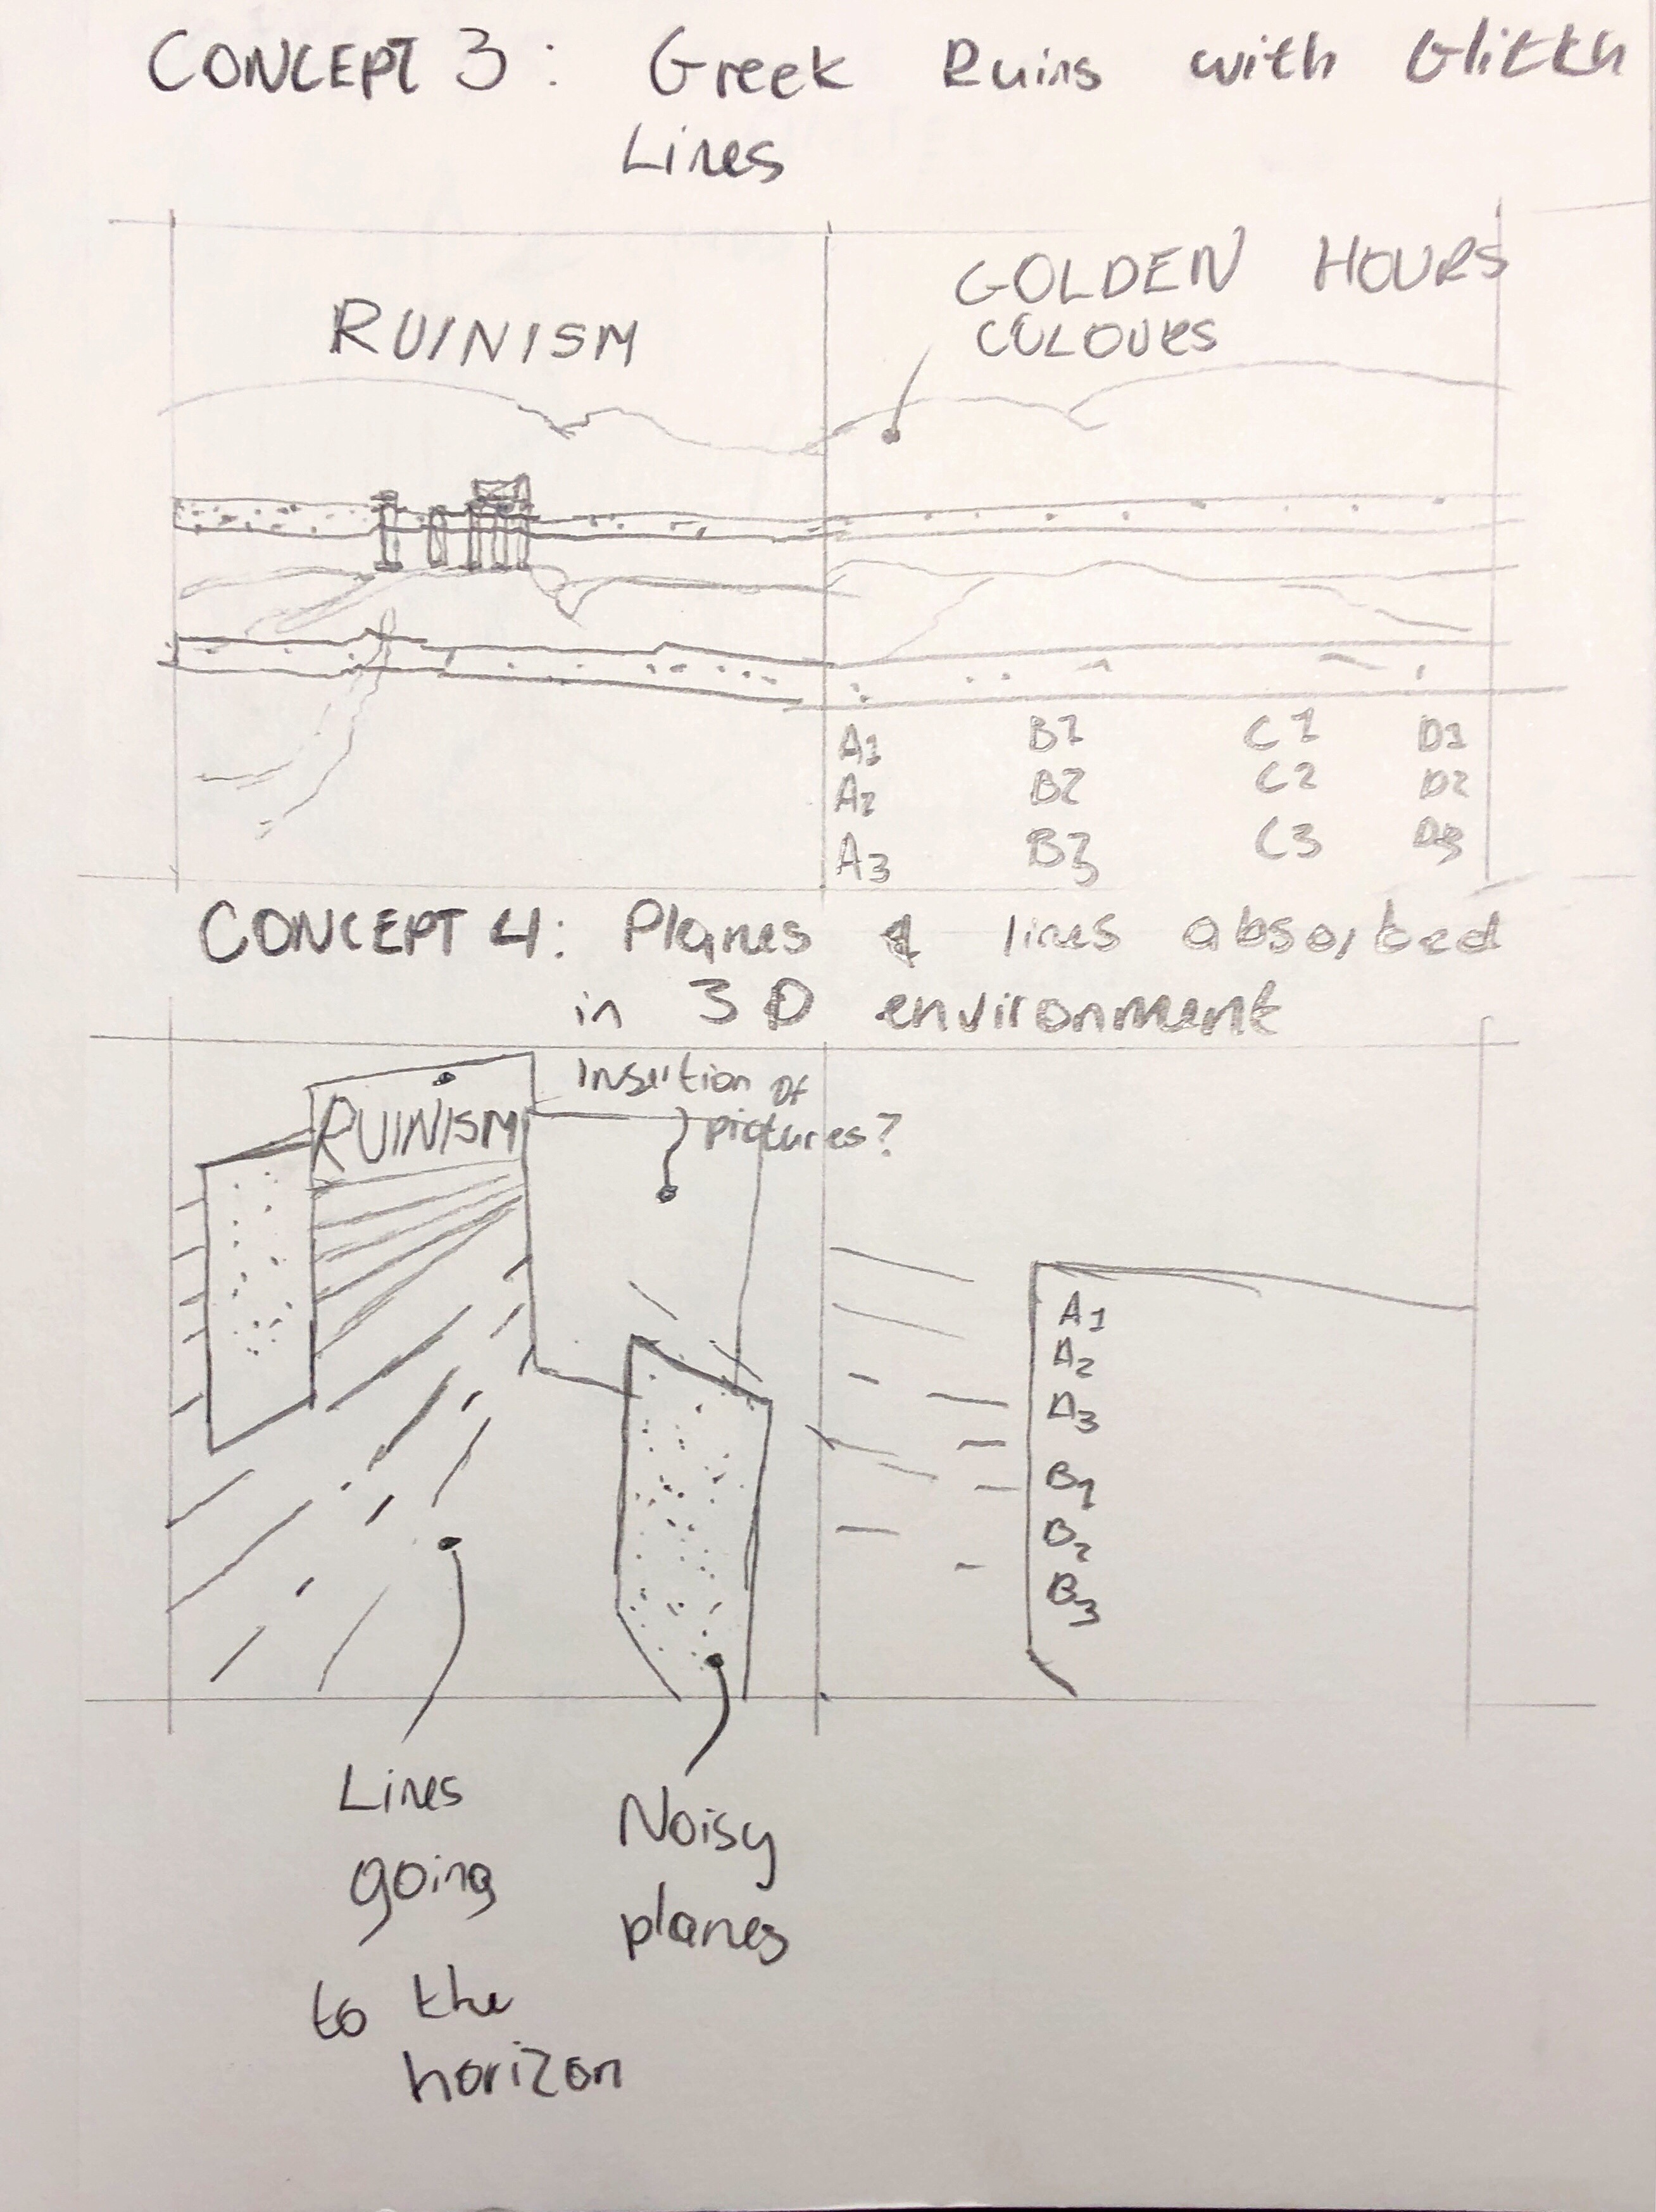 CONCEPT 3: Greek Ruins with Glitch
Lines
RUINISM
GOLDEN HOURS
COLOURS
A1 B1 C1 D1
A2 B2 C2 D2
A3 B3 C3 D3
CONCEPT 4: Planes & lines absorbed
in 3D environment
RUINISM
Insertion of
pictures?
A1
A2
A3
B1
B2
B3
Lines
going
to the
horizon
Noisy
planes